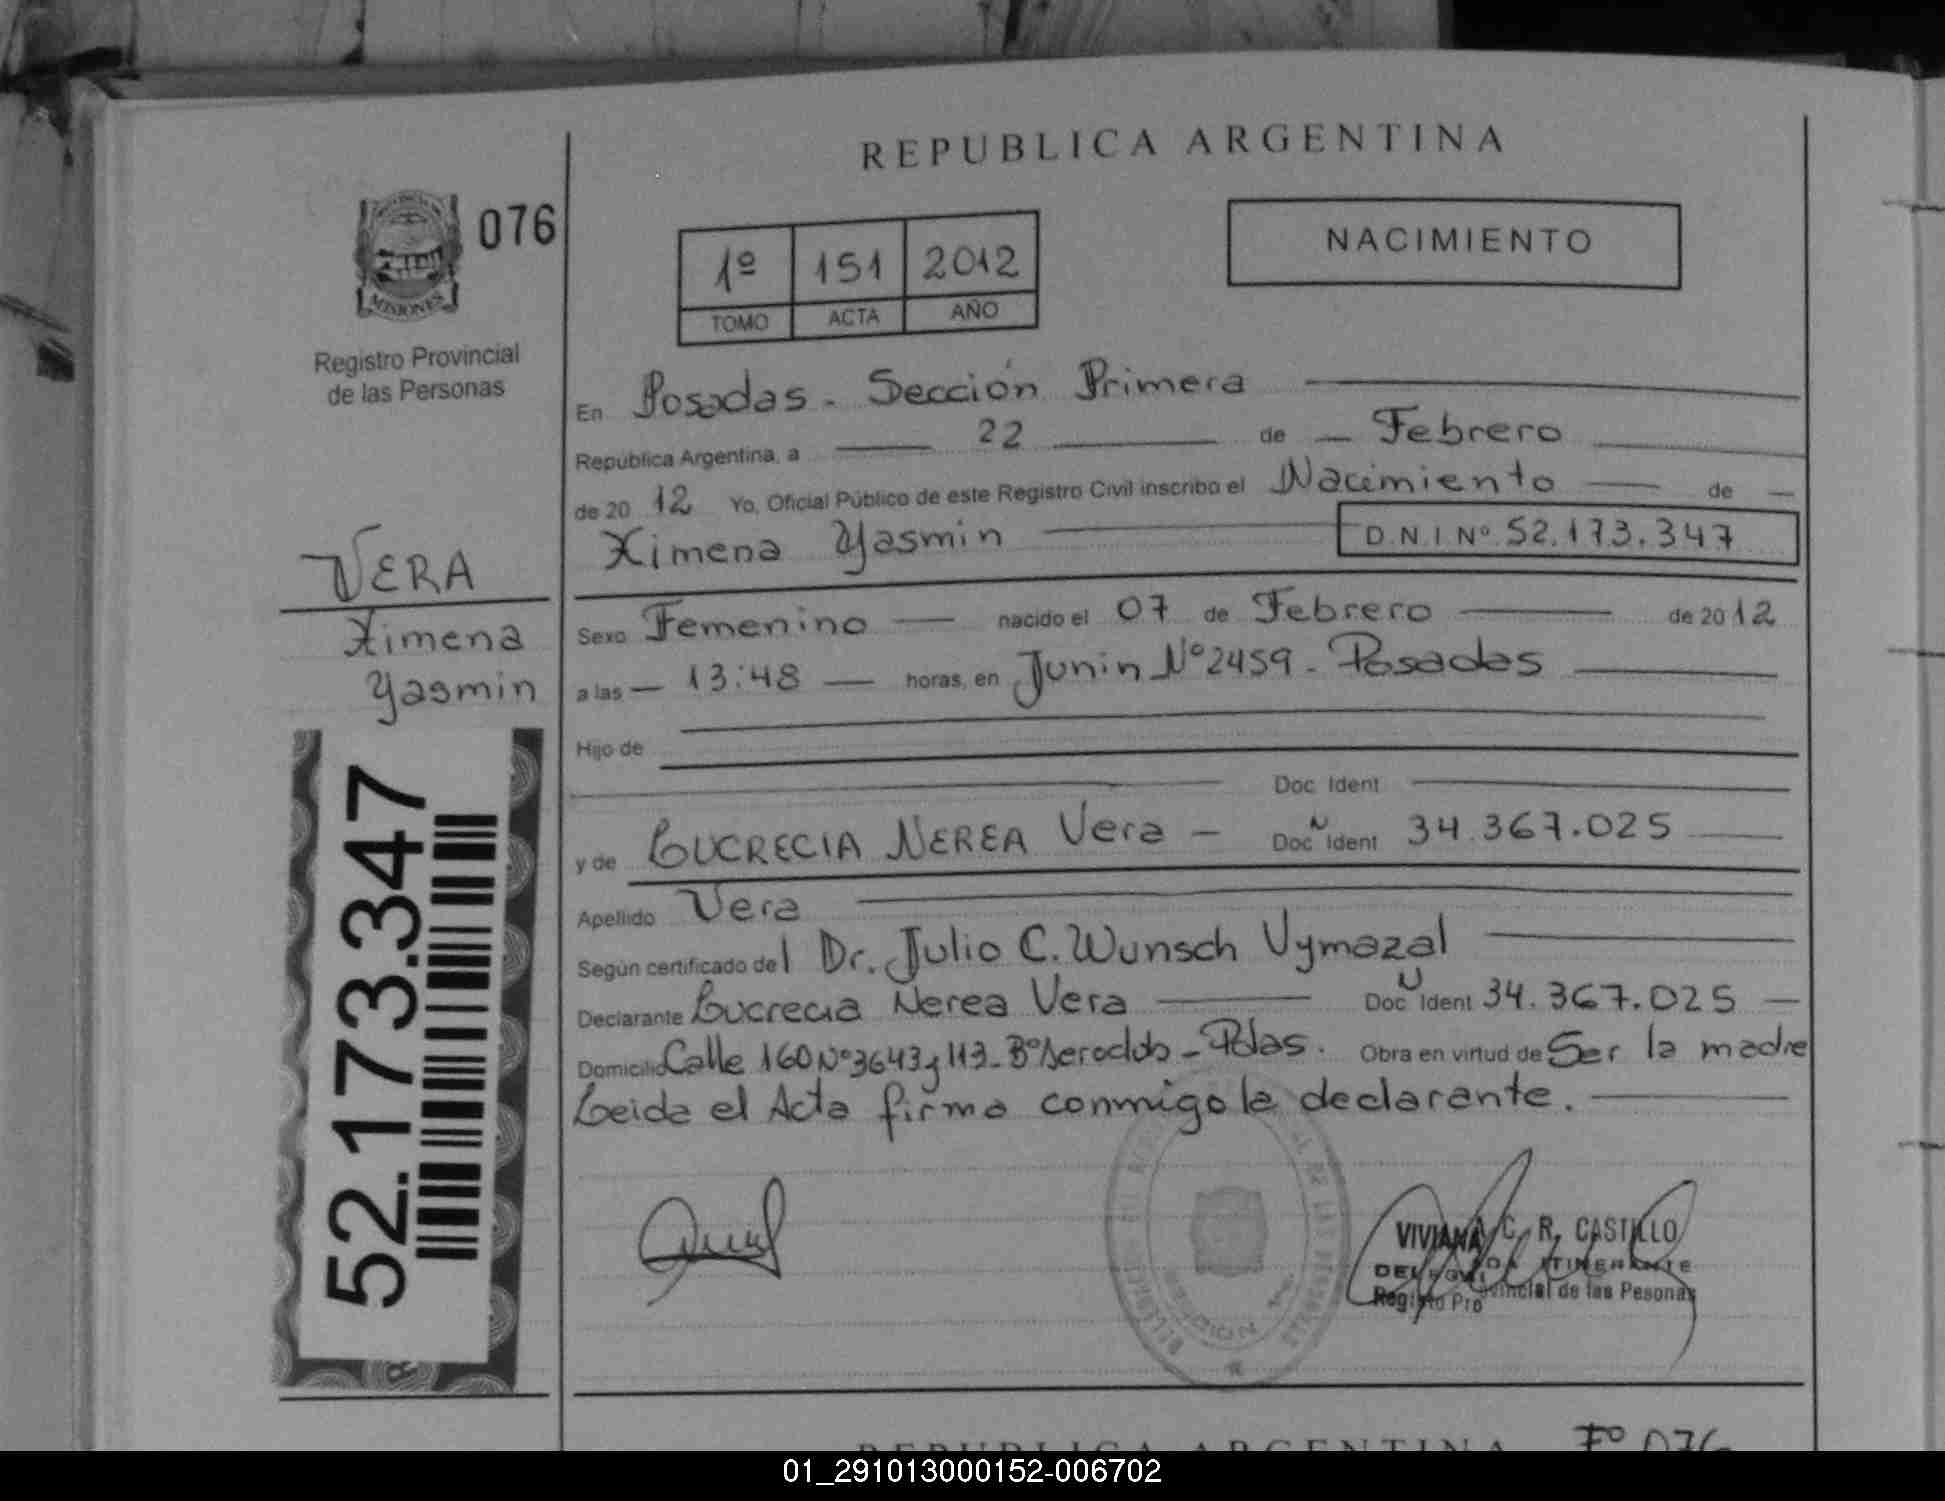 REPUBLICA ARGENTINA
076
MISIONES
Registro Provincial
de las Personas
1º 151 2012
TOMO ACTA AÑO
NACIMIENTO
En Posadas - Sección Primera
República Argentina, a 22 de Febrero
de 2012 Yo, Oficial Público de este Registro Civil inscribo el Nacimiento de
Ximena Yasmin D.N.I Nº 52.173.347
VERA
Ximena
Yasmin
52.173.347
Sexo Femenino nacido el 07 de Febrero de 2012
a las 13:48 horas, en Junin Nº 2459 - Posadas
Hijo de
Doc. Ident
y de LUCRECIA NEREA Vera - Doc N Ident 34.367.025
Apellido Vera
Según certificado del Dr. Julio C. Wunsch Vymazal
Declarante Lucrecia Nerea Vera Doc N Ident 34.367.025
Domicilio Calle 160 Nº 3643 y 113 - Bº Aeroclub - Pdas. Obra en virtud de Ser la madre
Leida el Acta firma conmigo la declarante.
VIVIANA C. R. CASTILLO
DELEGADA ITINERANTE
Registo Provincial de las Pesonas
REPUBLICA ARGENTINA Fº 076
01_291013000152-006702